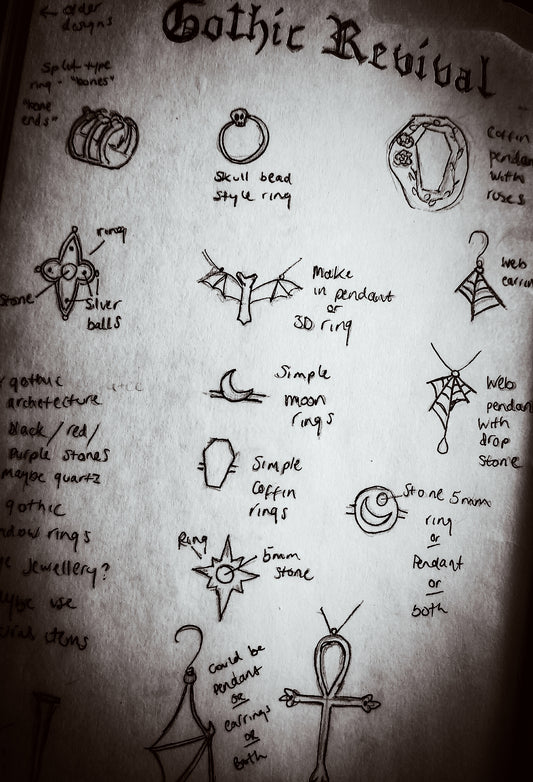 Gothic Revival
← older
designs
Split-type
ring - "bones"
"bone
ends"
Skull bead
style ring
Coffin
pendant
with
roses
ring
Stone
Silver
balls
Make
in pendant
or
3D ring
Web
earrin
gothic
architecture
black/red/
purple stones
maybe quartz
gothic
ndow rings
jewellery?
use
items
Simple
moon
rings
Web
pendan
with
drop
stone
Simple
coffin
rings
Stone 5mm
ring
or
Pendant
or
both
Ring
5mm
Stone
could be
pendant
or
earrings
or
Both